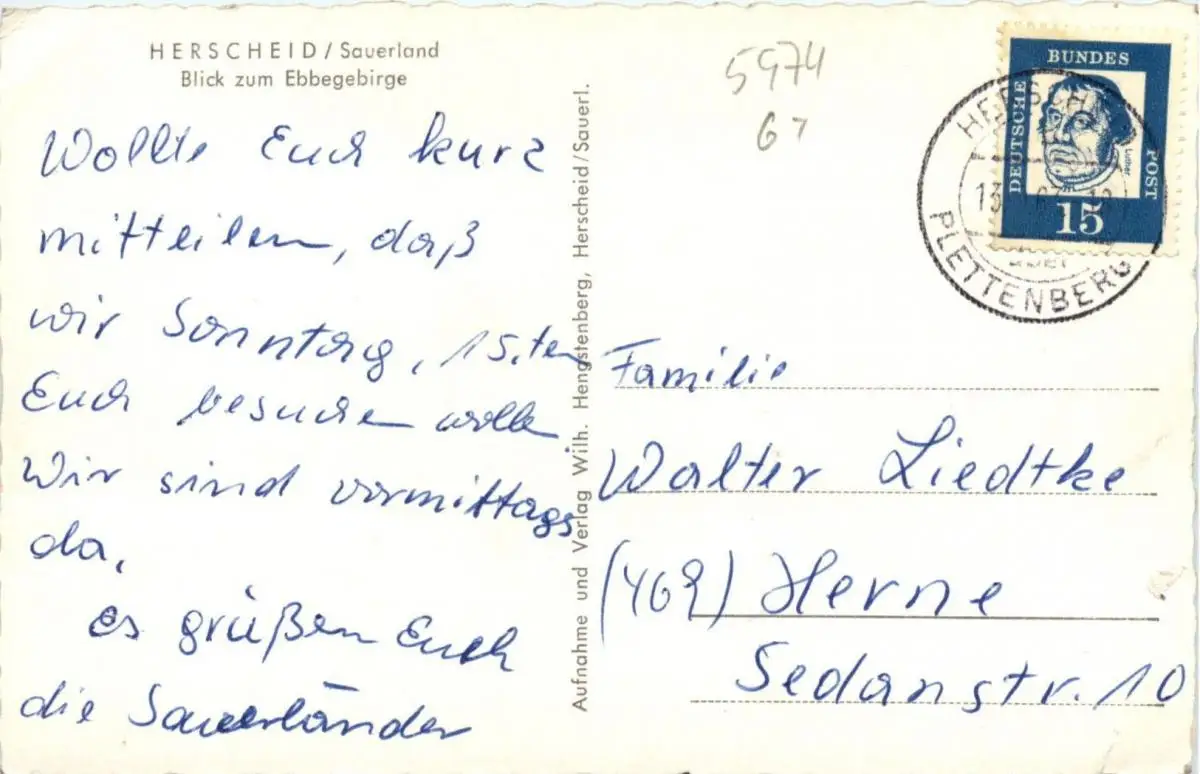 HERSCHEID/Sauerland
Blick zum Ebbegebirge
Wollte Euch kurz
mitteilen, daß
wir Sonntag, 15.ten
Euch besuchen wolln
Wir sind vormittags
da.
Es grüßen Euch
die Sauerländer
Aufnahme und Verlag Wilh. Hengstenberg, Herscheid/Sauerl.
5974
67
DEUTSCHE BUNDES POST
Luther
15
HERSCHEID
13 67
PLETTENBERG
Familie
Walter Liedtke
(469) Herne
Sedanstr. 10